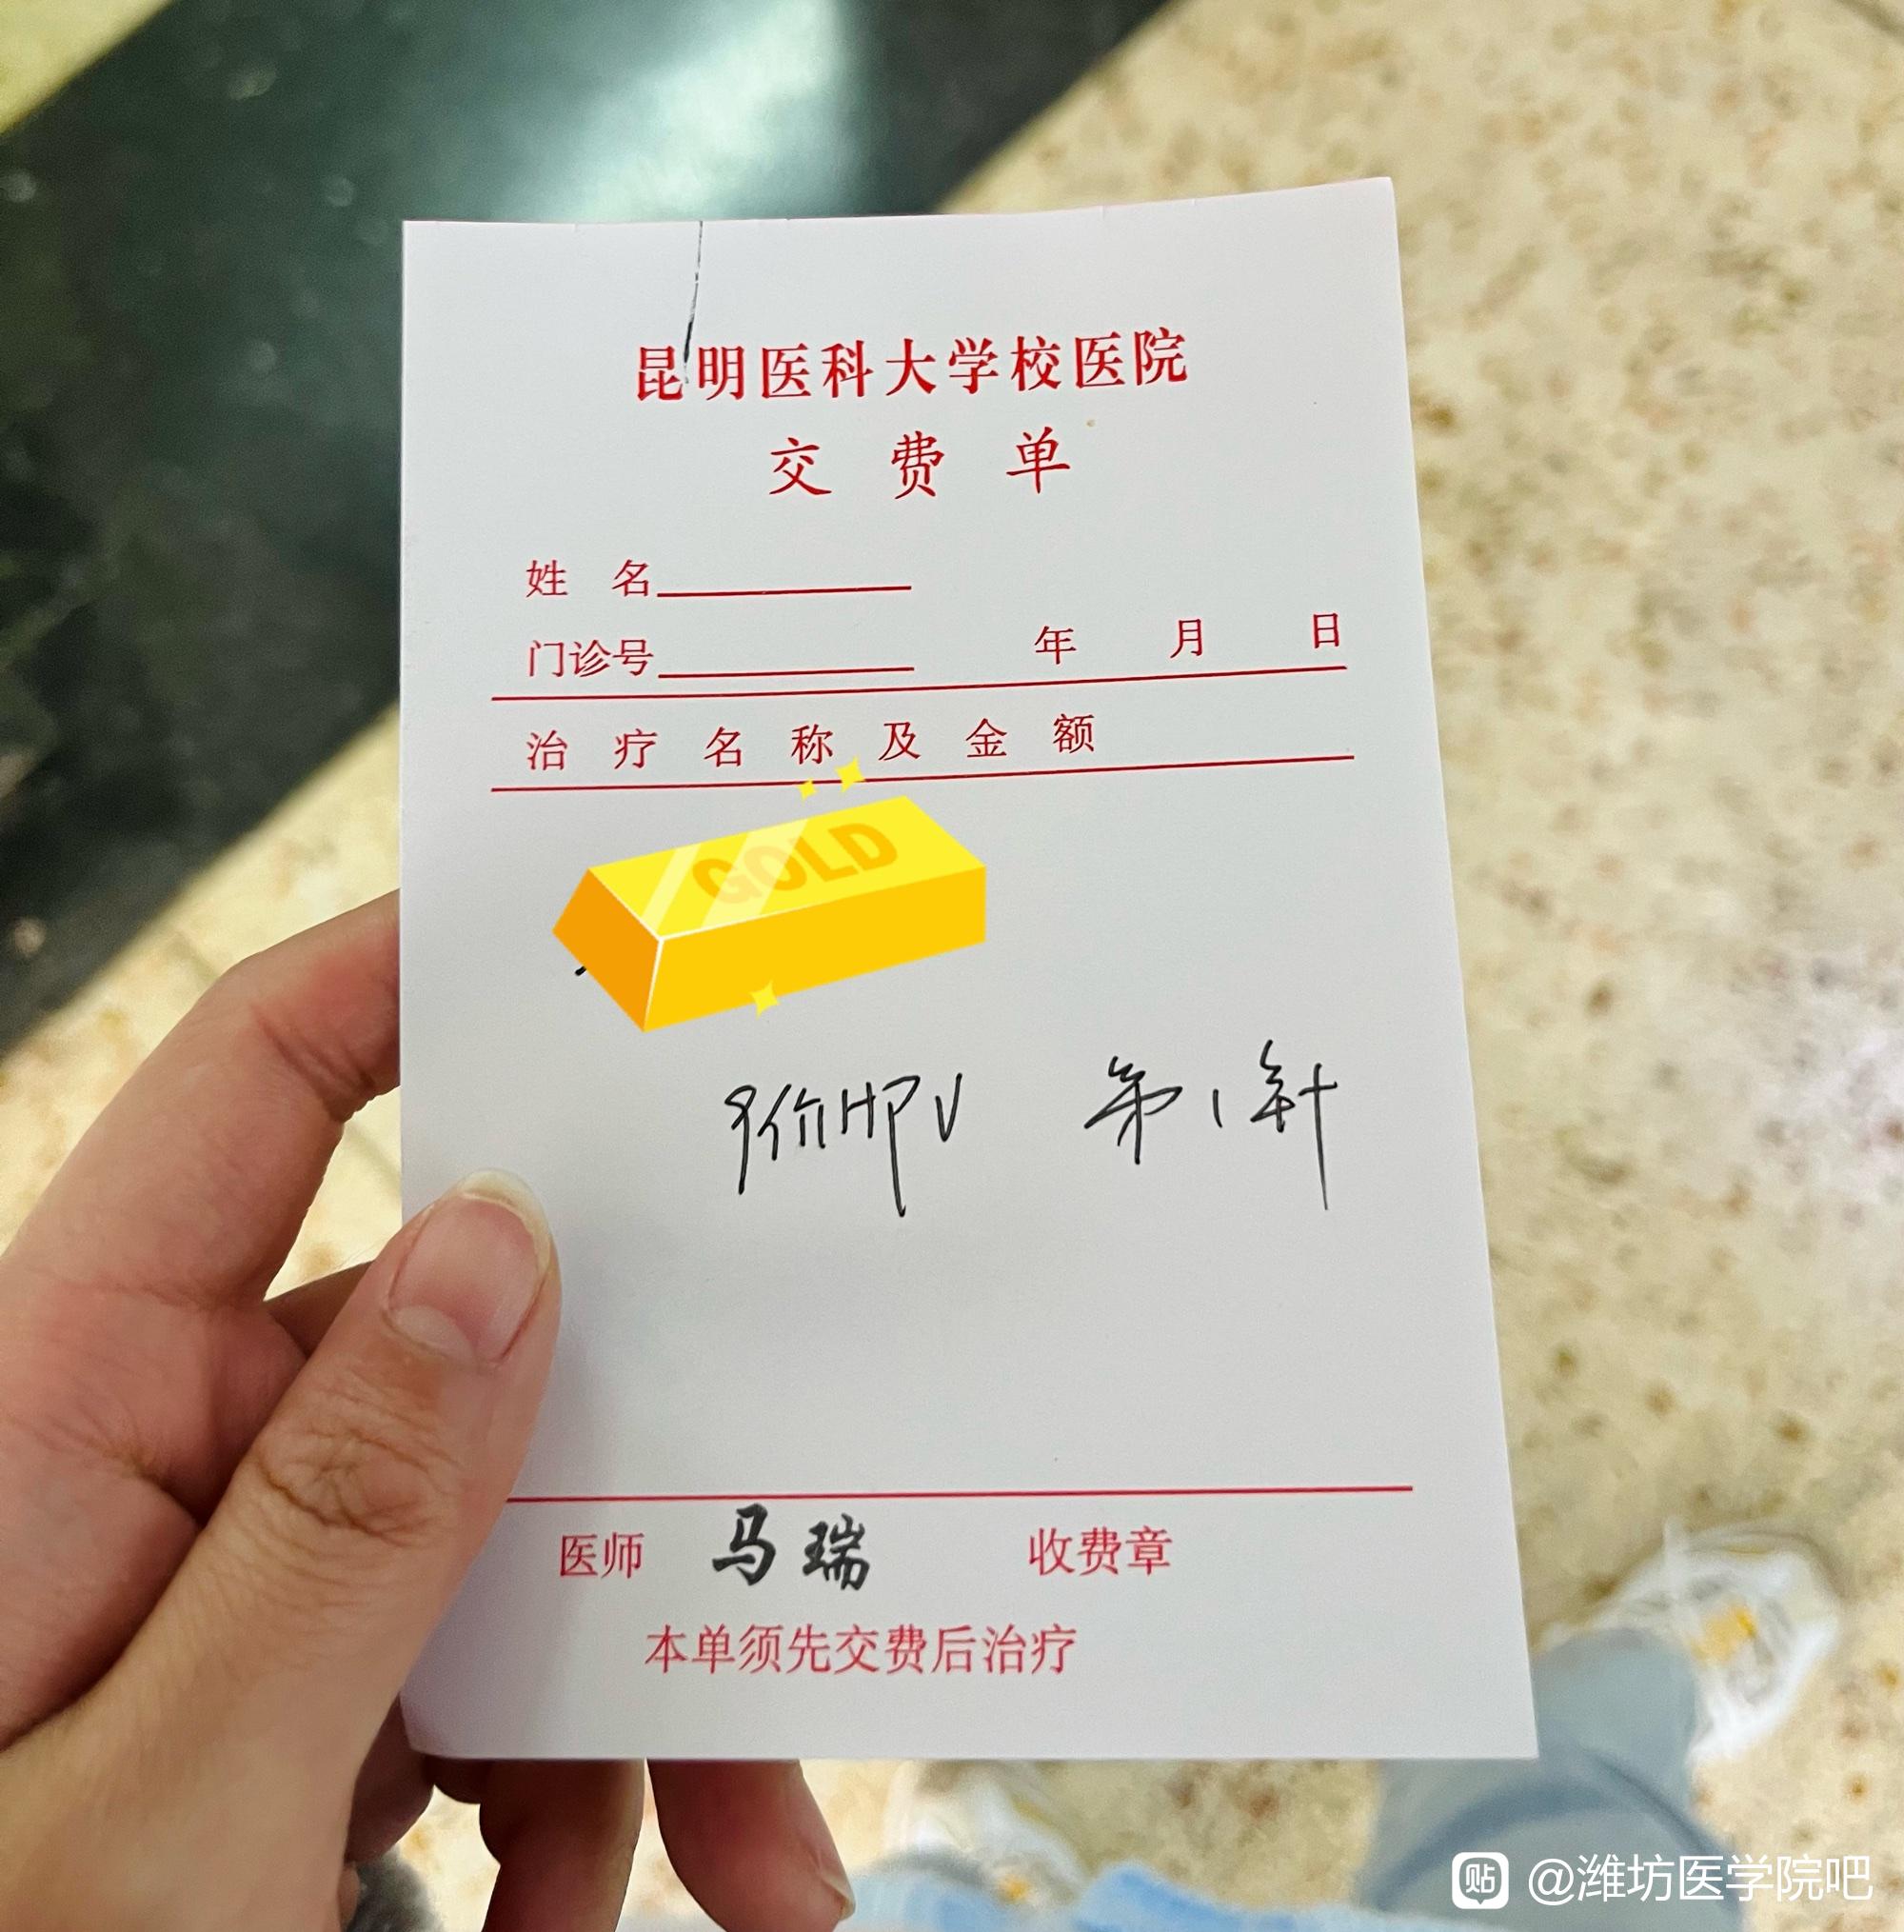 昆明医科大学校医院
交费单
姓名
门诊号 年 月 日
治疗名称及金额
GOLD
9价HPV 第1针
医师 马瑞 收费章
本单须先交费后治疗
贴 @潍坊医学院吧